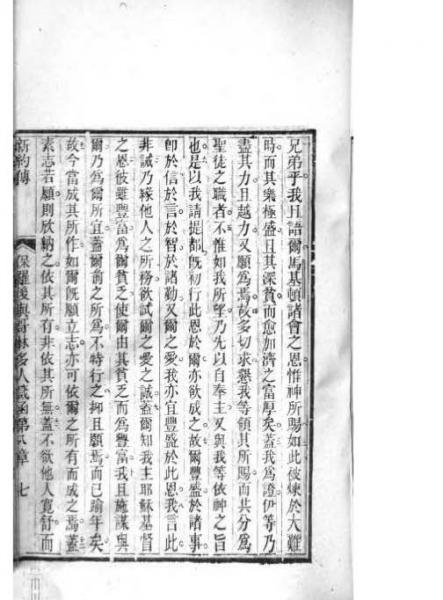 兄弟乎我且語爾馬基頓諸會之恩惟神所賜如此彼煉於大難
時而其樂極盛且其深貧而愈加濟之富厚矣蓋我爲證伊等乃
盡其力且越力又願爲焉故多切求懇我等領其所賜而共分爲
聖徒之職者不惟如我所望乃先以自奉主又與我等依神之旨
也是以我請提都既初行此恩於爾亦欲成之故爾豐盛於諸事
卽於信於言於智於諸勤又爾之愛我亦宜豐盛於此恩我言此
非誡乃緣他人之所務欲試爾之愛之誠蓋爾知我主耶穌基督
之恩彼雖豐富爲爾貧之使爾由其貧乏而爲豐富我且施謀與
爾乃爲爾所宜蓋爾前之所爲不特行之抑且願焉而已踰年矣
故今當成其所作如爾既願立志亦可依爾之所有而成之焉蓋
素志若願則欣納之依其所有非依其所無蓋不欲他人寬舒而
新約傳 保羅後與哥林多人試函第八章 七